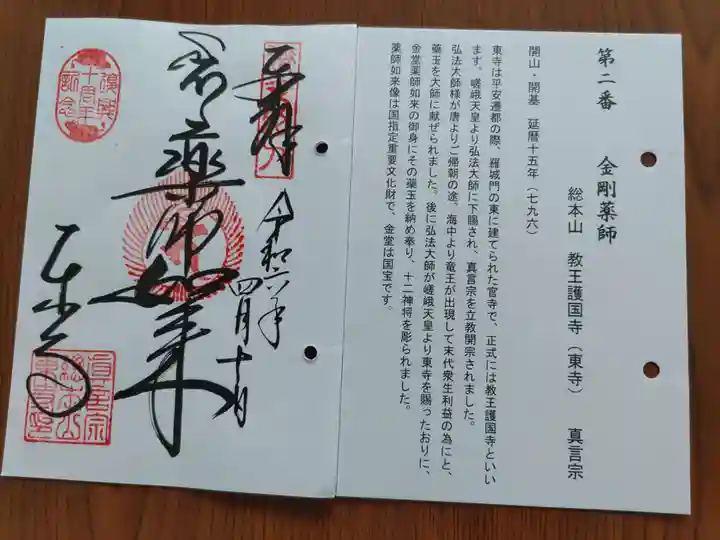 第二番　金剛薬師
総本山　教王護国寺（東寺）　真言宗
開山・開基　延暦十五年（七九六）
東寺は平安遷都の際、羅城門の東に建てられた官寺で、正式には教王護国寺といい
ます。嵯峨天皇より弘法大師に下賜され、真言宗を立教開宗されました。
弘法大師様が唐よりご帰朝の途、海中より竜王が出現して末代衆生利益の為にと、
薬玉を大師に献ぜられました。後に弘法大師が嵯峨天皇より東寺を賜ったおりに、
金堂薬師如来の御身にその薬玉を納め奉り、十二神将を彫られました。
薬師如来像は国指定重要文化財で、金堂は国宝です。
奉拝
令和六年
四月十日
薬師如来
東寺
復興
十周年
記念
真言宗
総本山
東寺印